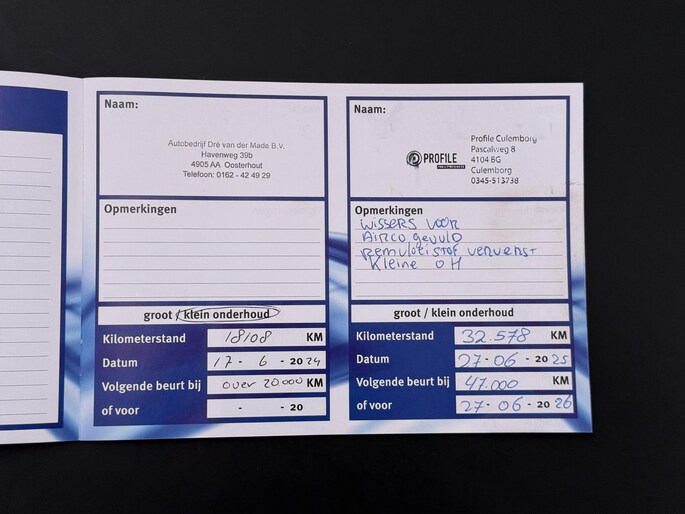 Naam:
Autobedrijf Dré van der Made B.V.
Havenweg 39b
4905 AA Oosterhout
Telefoon: 0162 - 42 49 29
Opmerkingen
groot / klein onderhoud
Kilometerstand 18108 KM
Datum 17 - 6 - 2024
Volgende beurt bij over 20000 KM
of voor - - 20
Naam:
PROFILE
Profile Culemborg
Pascalweg 8
4104 BG
Culemborg
0345-513738
Opmerkingen
wissers voor
Airco gevuld
remvloeistof ververst
Kleine OH
groot / klein onderhoud
Kilometerstand 32.578 KM
Datum 27 - 06 - 2025
Volgende beurt bij 47.000 KM
of voor 27 - 06 - 2026